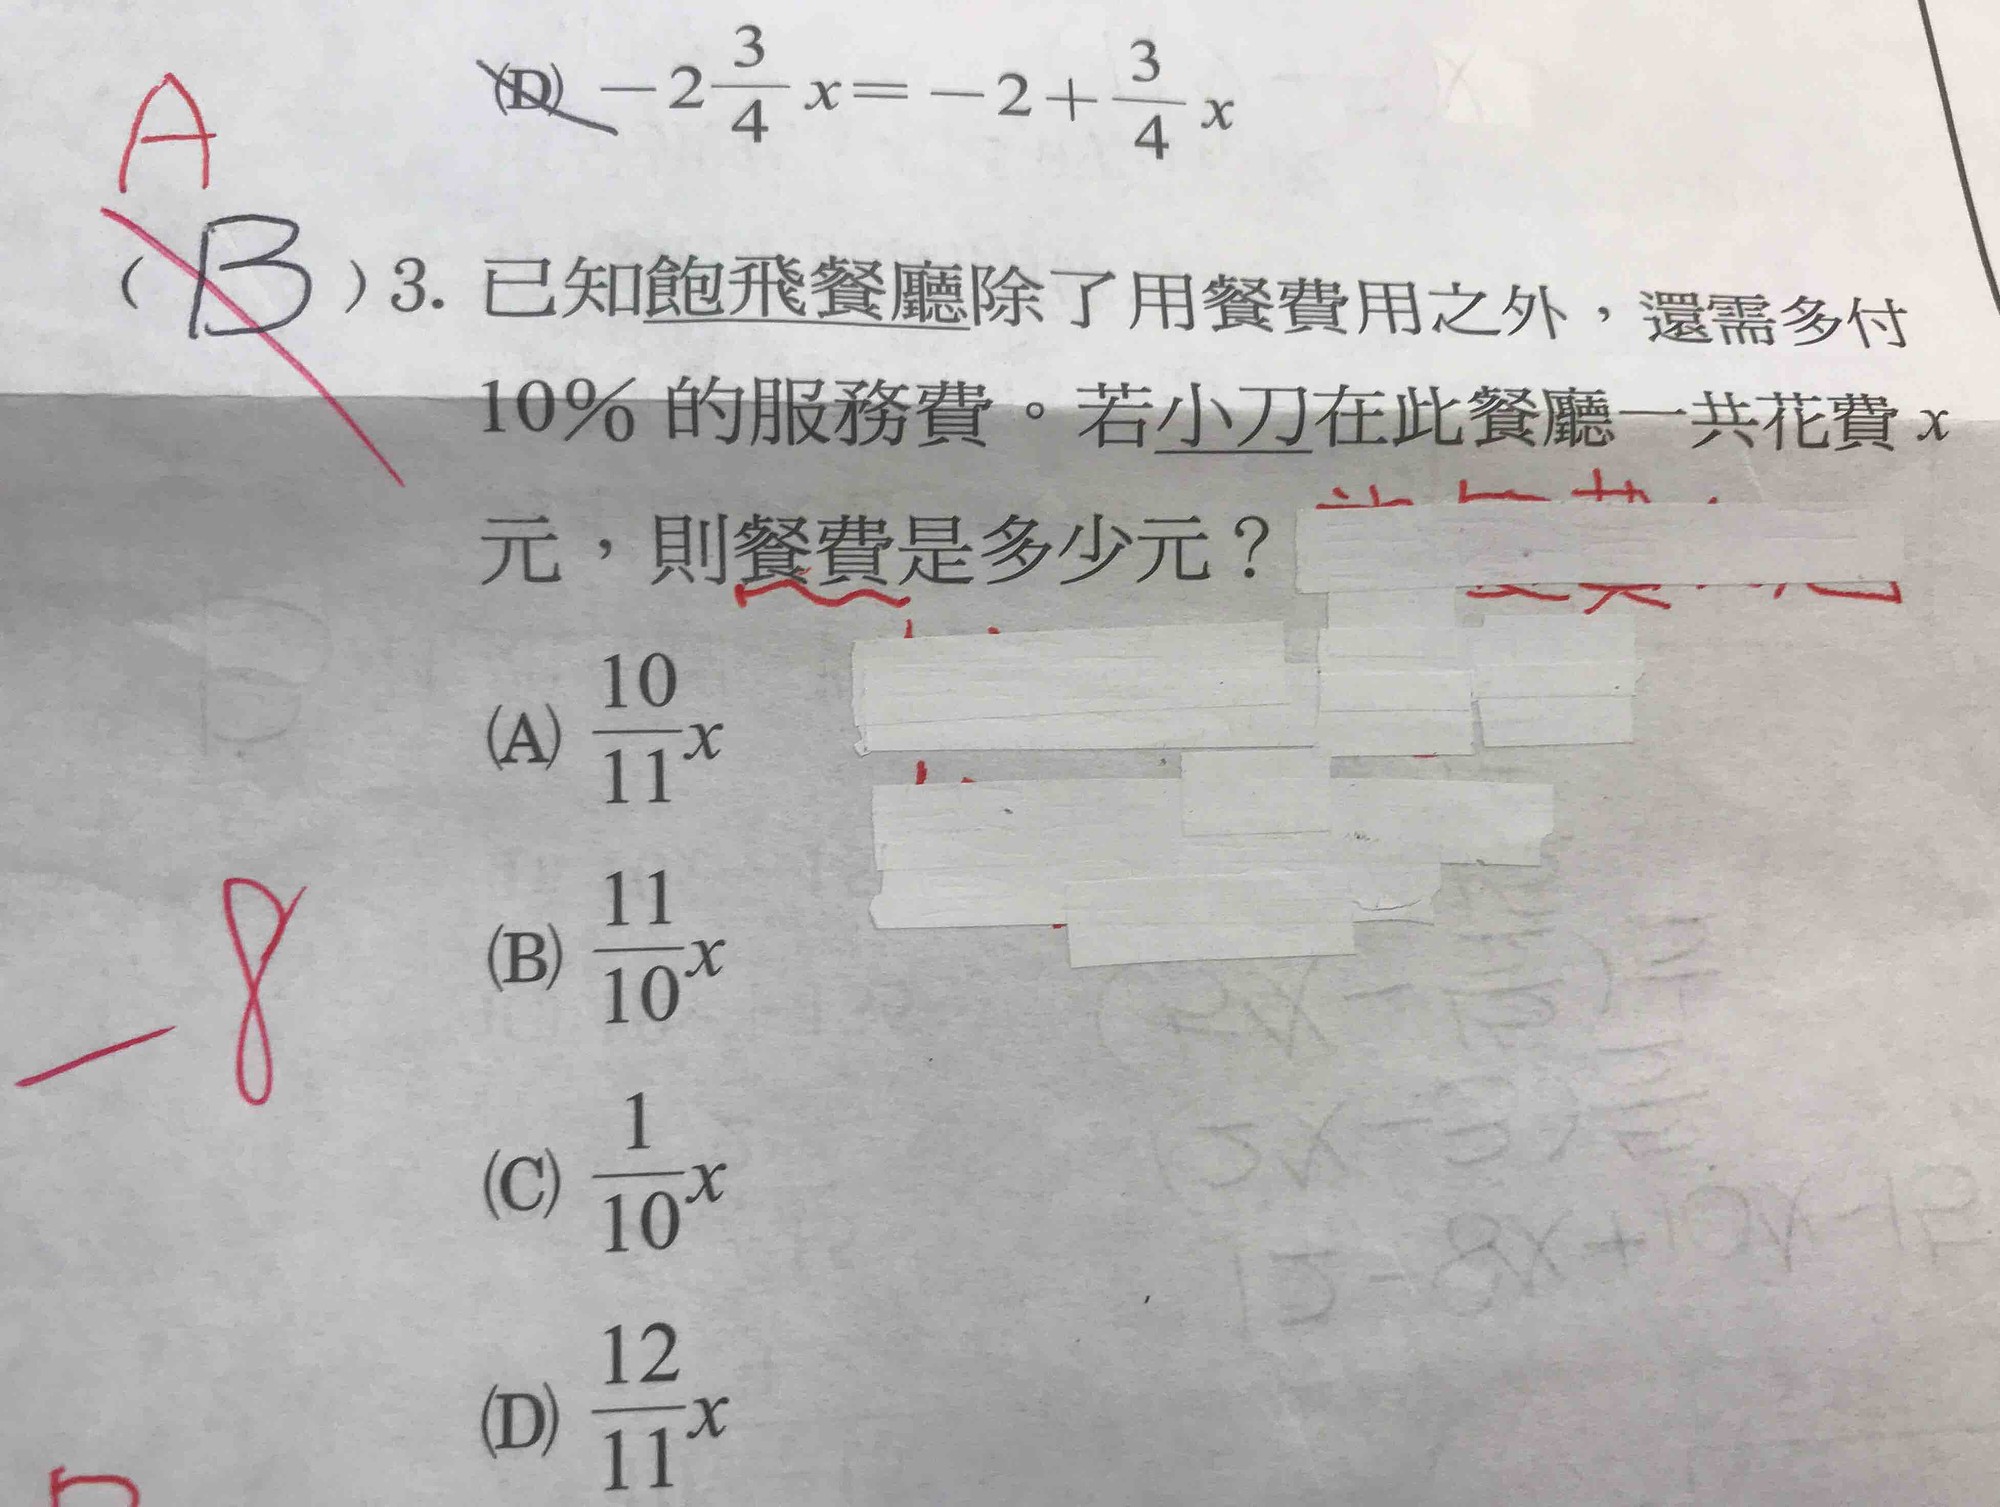 (D) −2 3/4 x = −2 + 3/4 x
A
( B ) 3. 已知飽飛餐廳除了用餐費用之外，還需多付
10% 的服務費。若小刀在此餐廳一共花費 x
元，則餐費是多少元？
(A) 10/11 x
(B) 11/10 x
−8
(C) 1/10 x
(D) 12/11 x